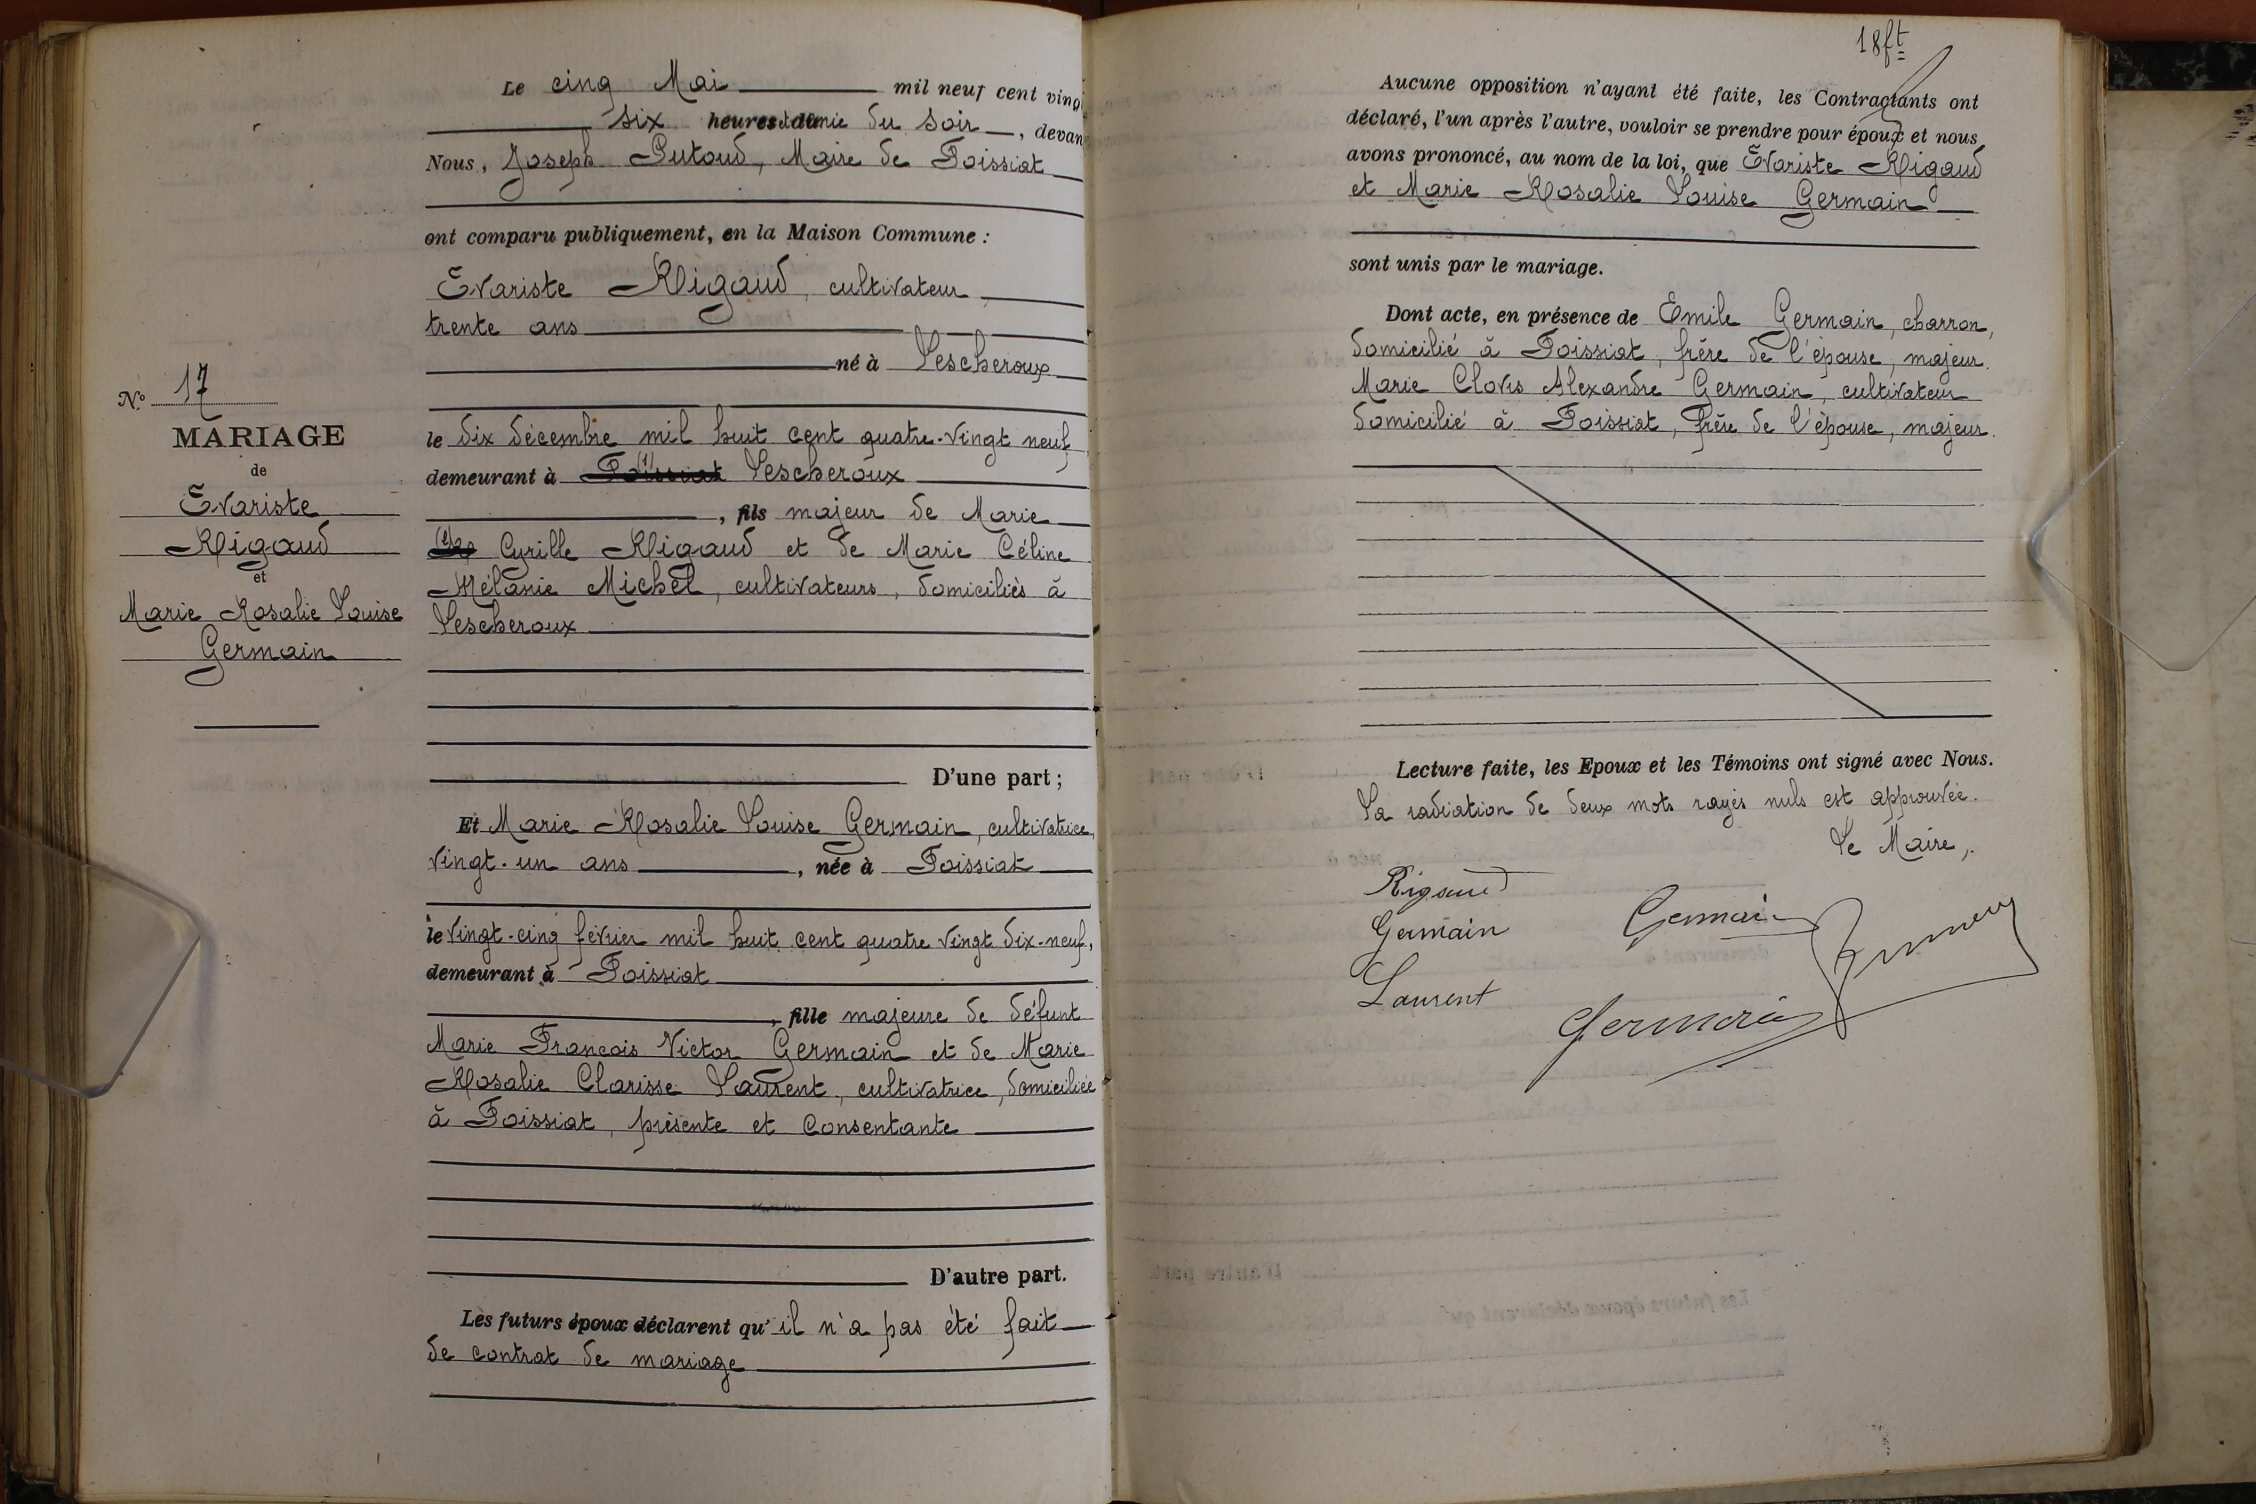 Le cinq Mai mil neuf cent vingt
six heures et demie du soir, devan
Nous, Joseph Putoud, Maire de Foissiat
ont comparu publiquement, en la Maison Commune :
Evariste Rigaud, cultivateur,
trente ans
né à Lescheroux
le dix décembre mil huit cent quatre-vingt neuf
demeurant à (1) Foissiat Lescheroux
, fils majeur de Marie
(2) Cyrille Rigaud et de Marie Céline
Mélanie Michel, cultivateurs, domiciliés à
Lescheroux
D'une part ;
Et Marie Rosalie Louise Germain, cultivatrice,
vingt-un ans, née à Foissiat
le vingt-cinq février mil huit cent quatre vingt dix-neuf,
demeurant à Foissiat
, fille majeure de défunt
Marie François Victor Germain et de Marie
Rosalie Clarisse Laurent, cultivatrice, domiciliée
à Foissiat, présente et consentante
D'autre part.
Les futurs époux déclarent qu'il n'a pas été fait
de contrat de mariage
N° 17
MARIAGE
de
Evariste
Rigaud
et
Marie Rosalie Louise
Germain
18 ft
Aucune opposition n'ayant été faite, les Contractants ont
déclaré, l'un après l'autre, vouloir se prendre pour époux et nous
avons prononcé, au nom de la loi, que Evariste Rigaud
et Marie Rosalie Louise Germain
sont unis par le mariage.
Dont acte, en présence de Emile Germain, charron,
domicilié à Foissiat, frère de l'épouse, majeur.
Marie Clovis Alexandre Germain, cultivateur
domicilié à Foissiat, frère de l'épouse, majeur.
Lecture faite, les Epoux et les Témoins ont signé avec Nous.
La radiation de deux mots rayés nuls est approuvée.
Le Maire,
Rigaud
Germain Germain
Laurent
Germain